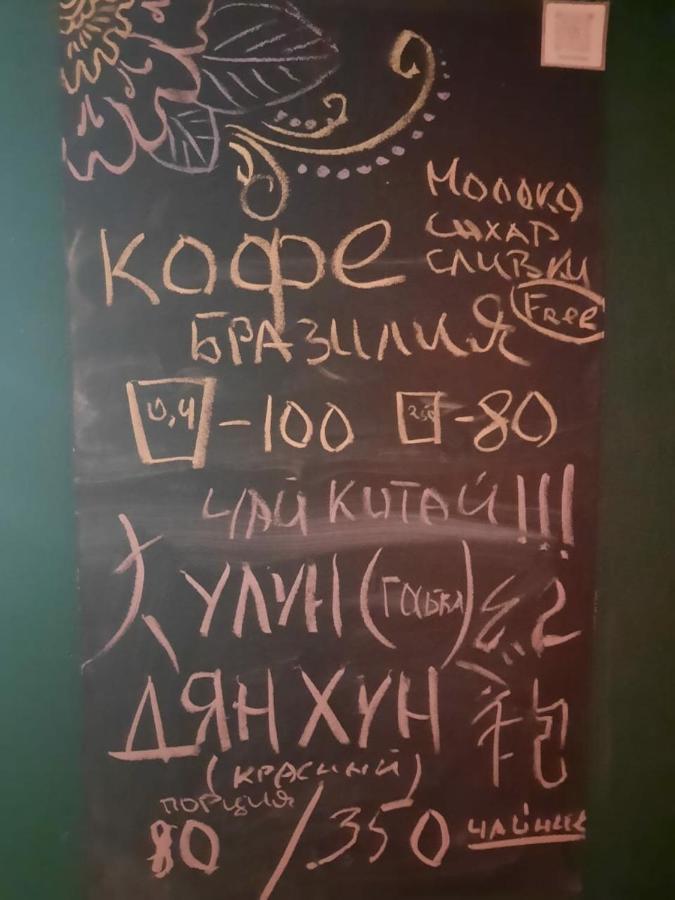 Молоко
сахар
сливки
Free
кофе
Бразилия
0,4 -100 250 -80
Чай Китай!!!
大 Улун (ГАБА) 红
Дян Хун 袍
(красный)
порция
80 / 350 чайник